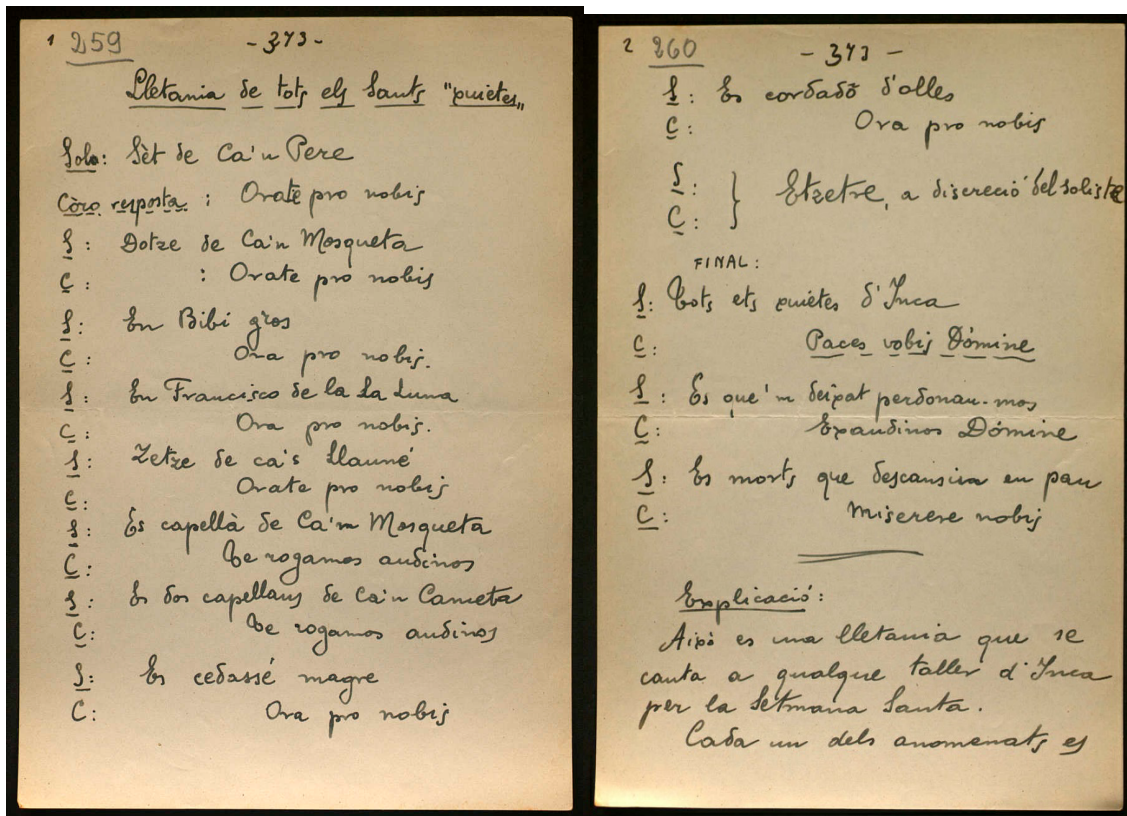 1 259
- 373 -
Lletania de tots els Sants "quietes„
Solo: Sèt de Ca'n Pere
Còro resposta: Orate pro nobis
S: Dotze de Ca'n Mosqueta
C: : Orate pro nobis
S: En Bibí gros
C: Ora pro nobis.
S: En Francisco de la La Luna
C: Ora pro nobis.
S: Zetze de ca's Llauné
C: Orate pro nobis
S: Es capellà de Ca'n Mosqueta
C: Te rogamos audinos
S: Es dos capellans de Ca'n Cameta
C: Te rogamos audinos
S: Es cedassé magre
C: Ora pro nobis
2 260
- 373 -
S: Es cordadó d'olles
C: Ora pro nobis
S: } Etzetre, a discreció del solista
C:
FINAL:
S: Tots ets quietes d'Inca
C: Paces vobis Dómine
S: Es que'm deixat perdonau-mos
C: Exaudinos Dómine
S: Es morts que descansin en pau
C: Miserere nobis
Explicació:
Aixó es una lletania que se
canta a qualque taller d'Inca
per la Setmana Santa.
Cada un dels anomenats es